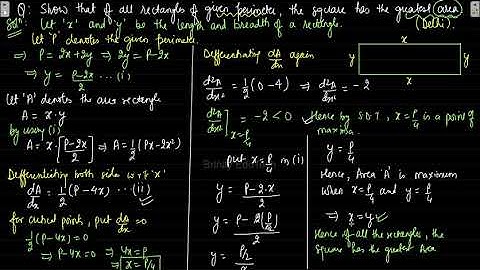 Q: Show that of all rectangles of given perimeter, the square has the greatest area.
Solⁿ: Let 'x' and 'y' be the length and breadth of a rectangle. (Delhi)
Let 'P' denotes the given perimeter.
⇒ P = 2x+2y ⇒ 2y = P-2x
⇒ y = P-2x/2 ... (i)
Let 'A' denotes the area rectangle
A = x·y
by using (i)
A = x[P-2x/2] ⇒ A = 1/2(Px-2x²)
Differentiating both side w.r.t 'x'
dA/dx = 1/2(P-4x) ...(ii)
for critical points, put dA/dx = 0
1/2(P-4x) = 0 ⇒ 4x = P
⇒ P-4x = 0 ⇒ x = P/4
Differentiating dA/dx again
d²A/dx² = 1/2(0-4) ⇒ d²A/dx² = -2
d²A/dx²]x=P/4 = -2 < 0
put x = P/4 in (i)
y = P-2·x/2
y = P-2(P/4)/2
y = P/2/2
x
y
y
x
Hence by S.D.T, x = P/4 is a point of
maxima
y = P/4
Hence, Area 'A' is maximum
when x = P/4 and y = P/4
⇒ x = y
Hence of all the rectangles, the
square has the greatest Area.